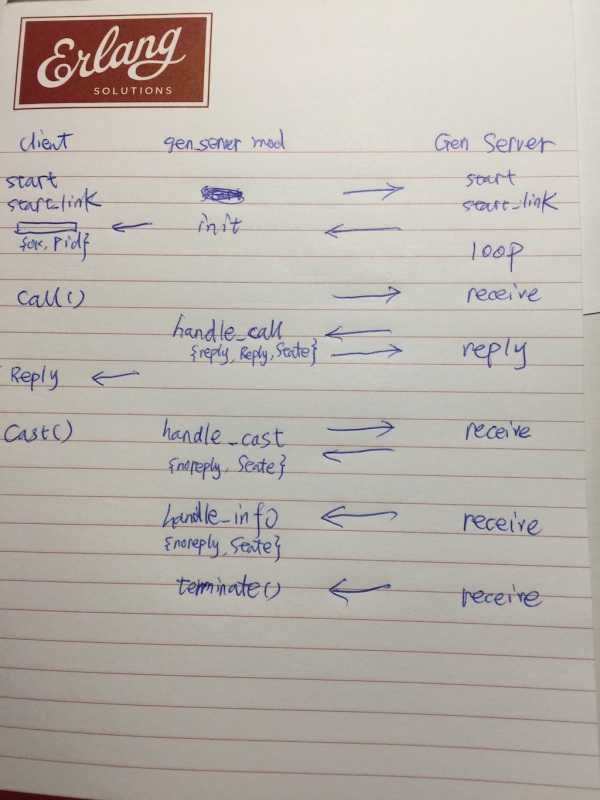 Erlang
SOLUTIONS
client gen_server mod Gen Server
start start
start_link start_link
init
{ok, Pid}
loop
call() receive
handle_call
{reply, Reply, State} reply
Reply
Cast() handle_cast receive
{noreply, State}
handle_info receive
{noreply, State}
terminate() receive